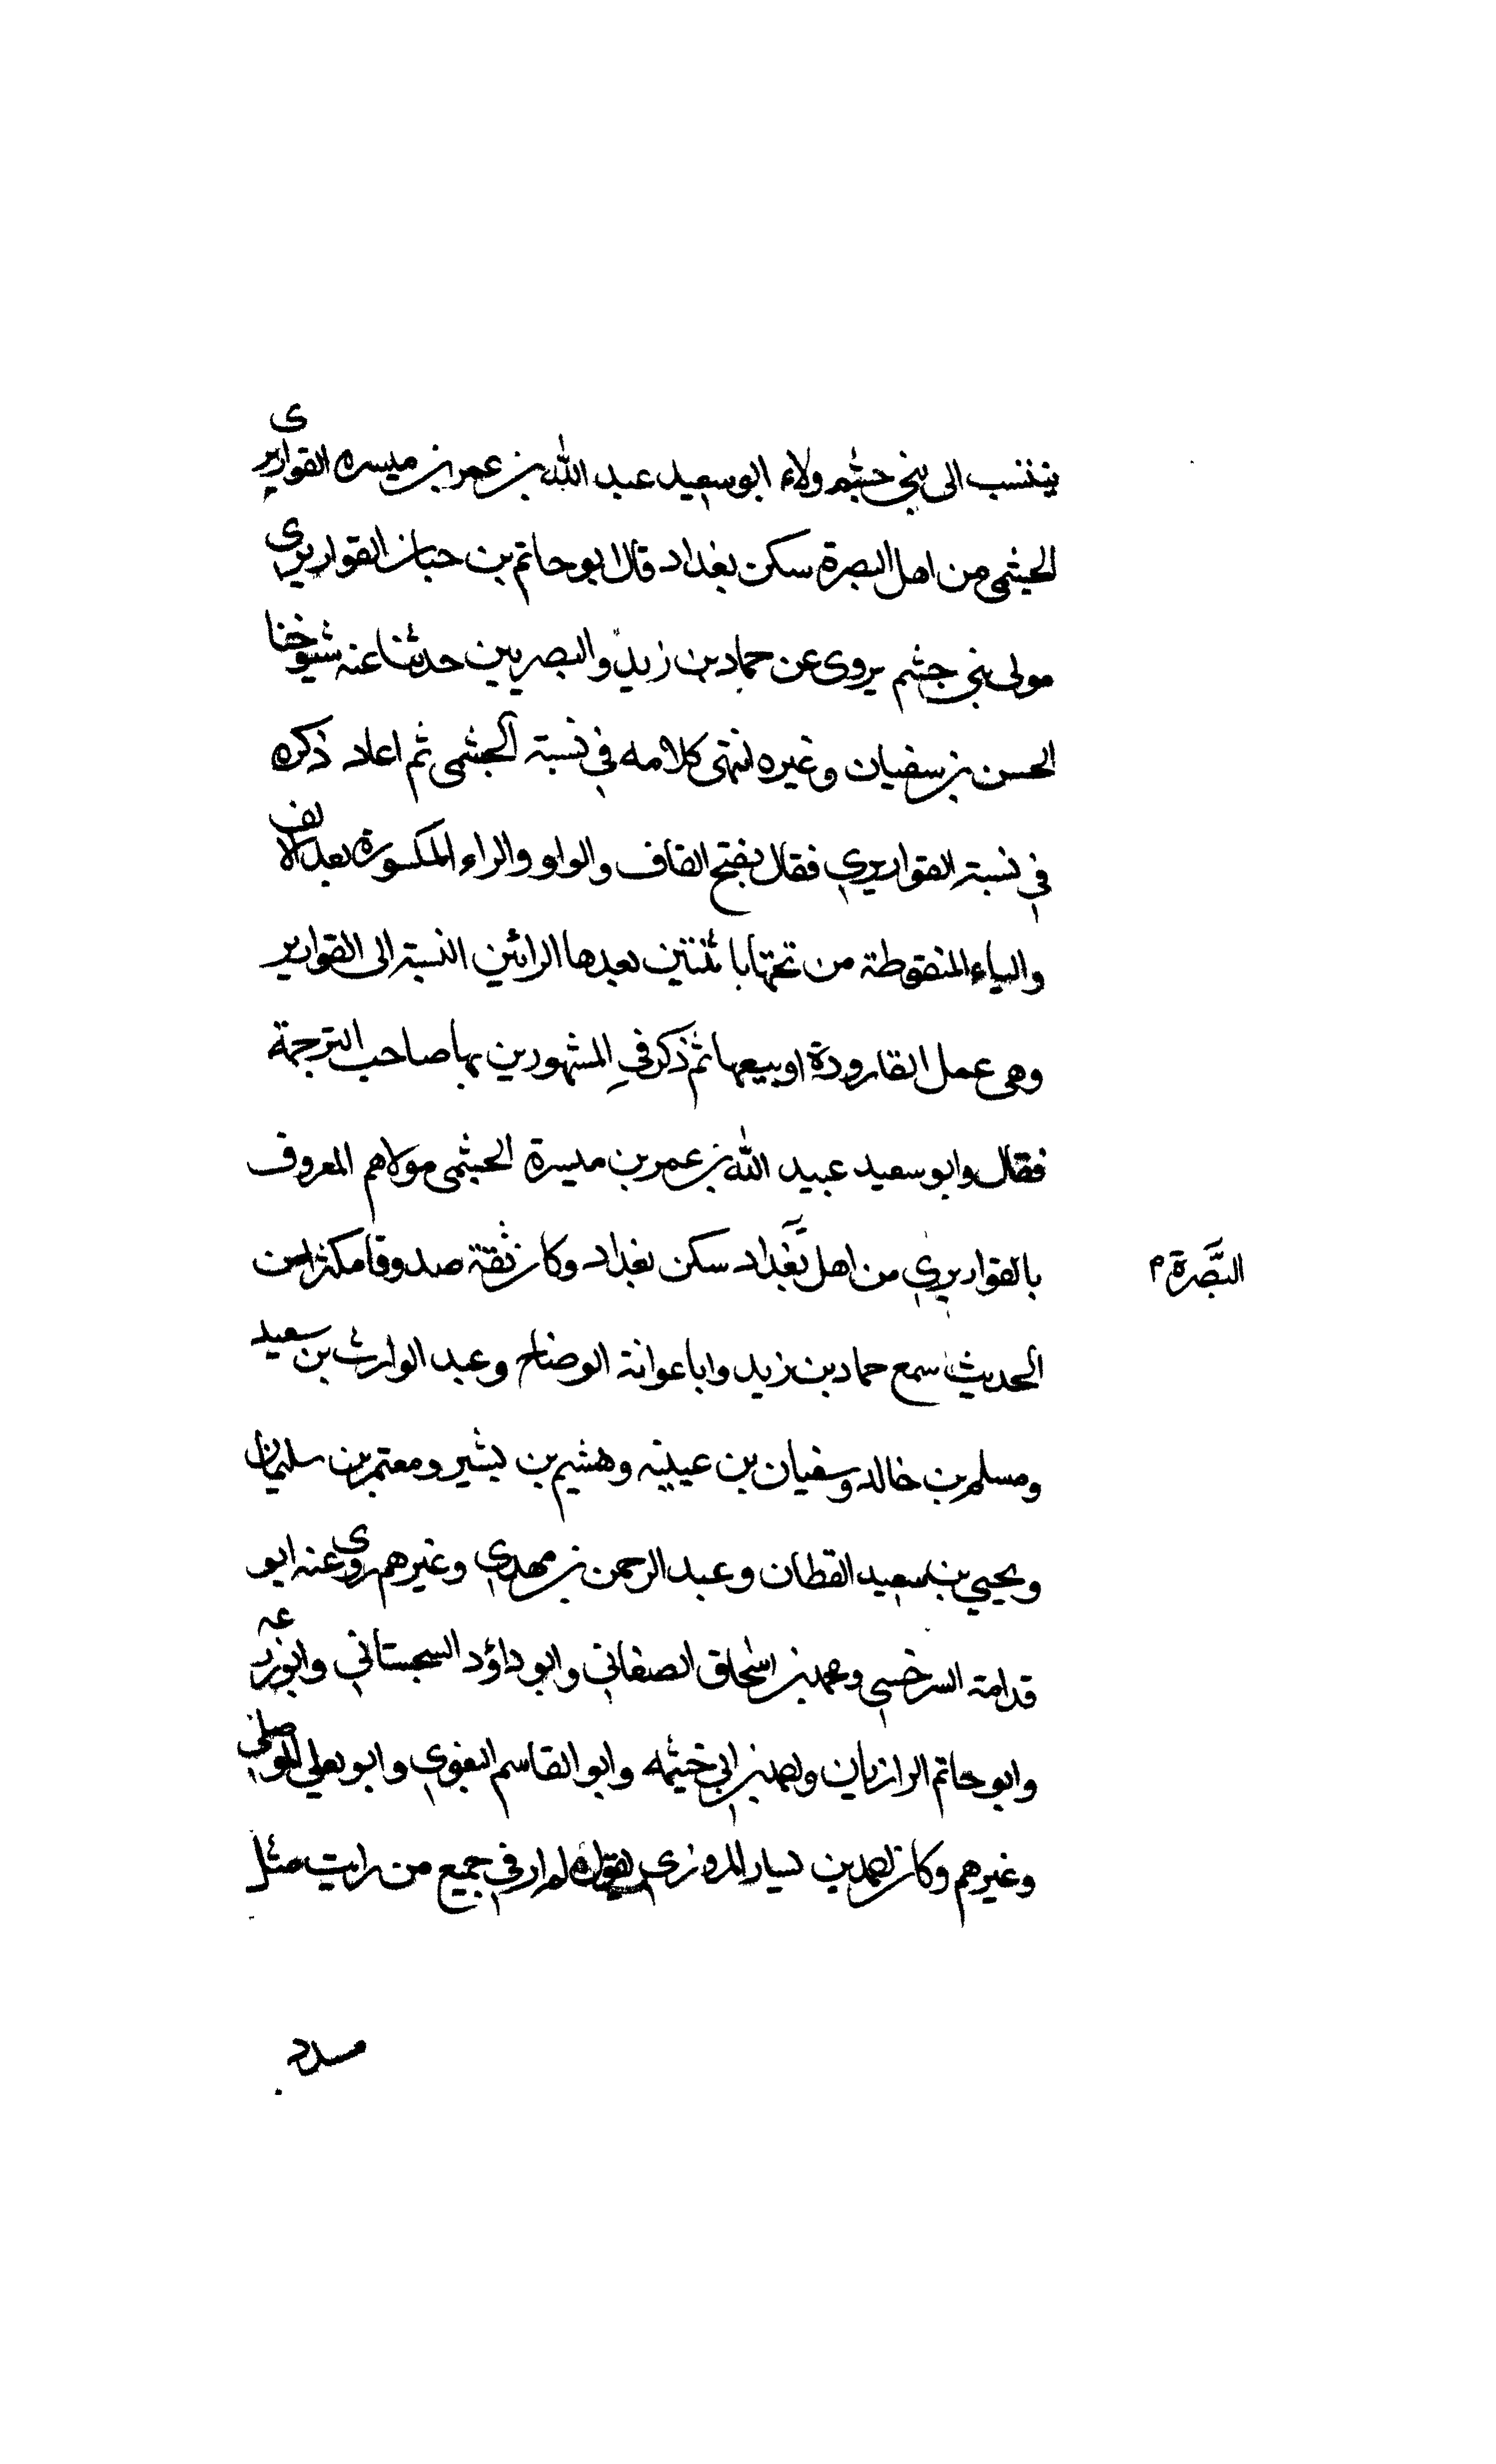 ينتسب الى بني جشم ولاء ابو سعيد عبد الله بن عمر بن ميسره القواريرى
الجشمى من اهل البصرة سكن بغداد قال ابو حاتم بن حبان القواريرى
مولى بنى جشم يروى عن حماد بن زيد والبصريين حدثنا عنه شيوخنا
الحسن بن سفيان وغيره انتهى كلامه في نسبة الجشمى ثم اعاد ذكره
في نسبة القواريري فقال بفتح القاف والواو والراء المكسورة بعد الالف
والياء المنقوطة من تحتها باثنتين بعدها الرائين النسبة الى القوارير
وهى عمل القارورة او بيعها ثم ذكر في المشهورين بها صاحب الترجمة
فقال وابو سعيد عبيد الله بن عمر بن ميسرة الجشمى مولاهم المعروف
بالقواريري من اهل بغداد سكن بغداد وكان ثقة صدوقا مكثرا من
البصرة م
الحديث سمع حماد بن زيد وابا عوانة الوضاح وعبد الوارث بن سعيد
ومسلم بن خالد وسفيان بن عيينه وهشيم بن بشير ومعتمر بن سليمان
ويحيي بن سعيد القطان وعبد الرحمن بن مهدي وغيرهم روى عنه ابو
قدامة السرخسي ومحمد بن اسحاق الصغاني وابو داؤد السجستاني وابو زرعه
وابو حاتم الرازيان واحمد بن ابي خيثمه وابو القاسم البغوي وابو يعلي الموصلي
وغيرهم وكان احمد بن سيار المروزى يقول لم ار في جميع من رايت مثل
مسدد